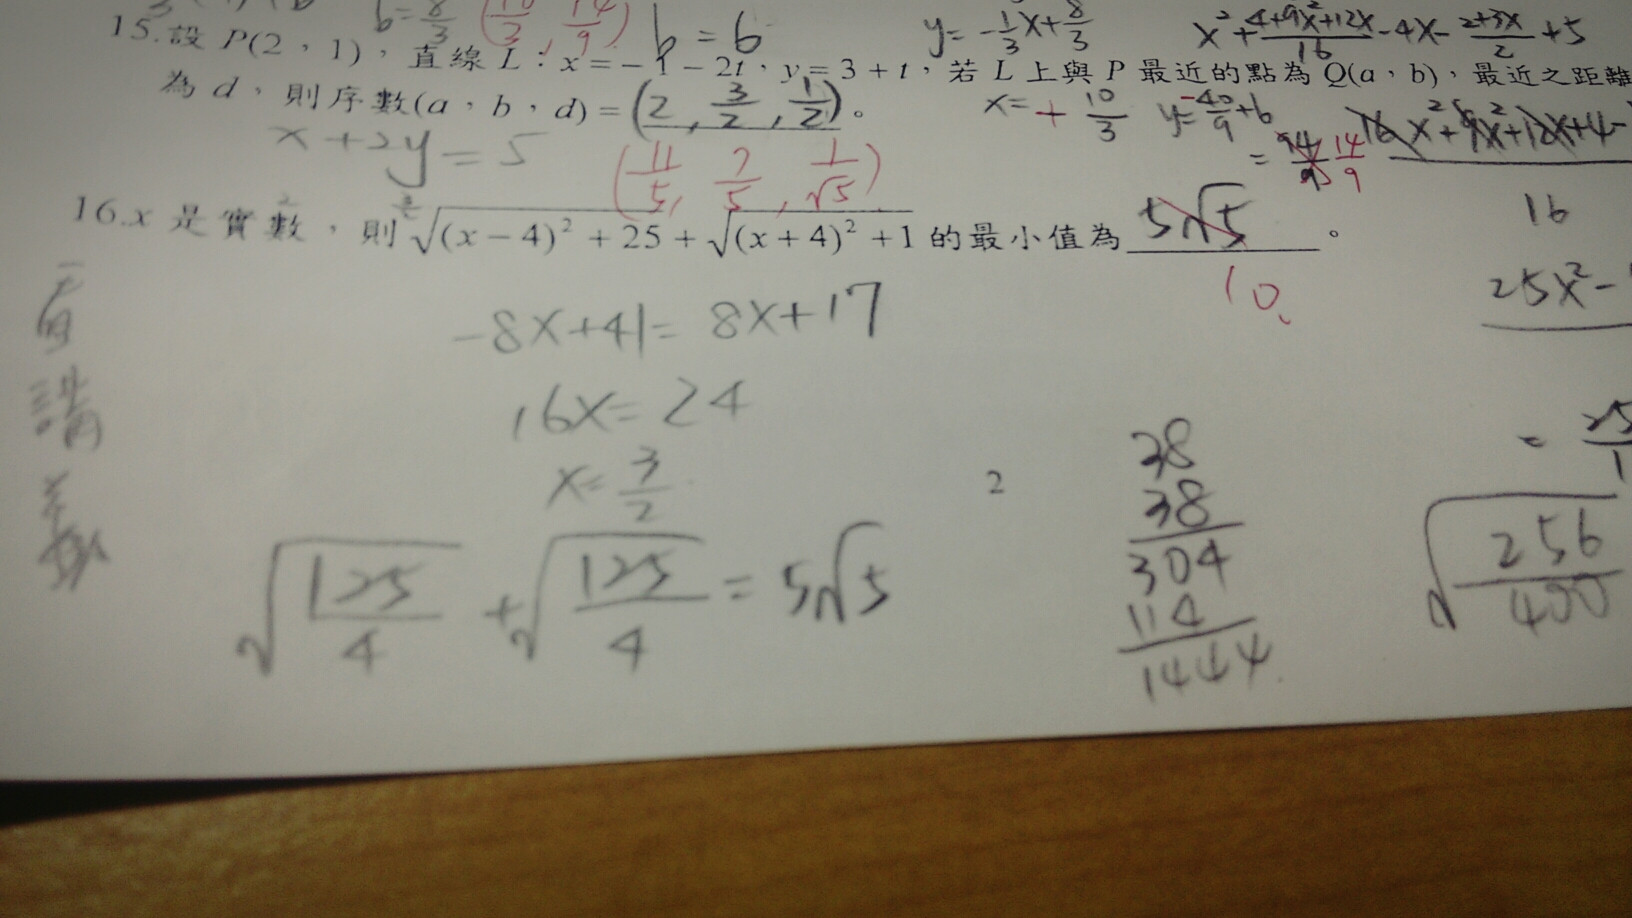 b=8/3 (10/3, 14/9) b=6 y=-1/3x+8/3 x²+(4+9x²+12x)/16-4x-(2+3x)/2+5
15.設 P(2,1),直線 L:x=-1-2t,y=3+t,若 L 上與 P 最近的點為 Q(a,b),最近之距離
為 d,則序數(a,b,d)=(2, 3/2, 1/2)。 x=+10/3 y=-40/9+6
x+2y=5 (11/5, 7/5, 1/√5) = 14/9 16x²+9x²+12x+4-
16
16.x 是實數,則√(x-4)²+25+√(x+4)²+1 的最小值為 5√5。
10
25x²-
-8x+41=8x+17
16x=24
x=3/2
看講義
√125/4+√125/4=5√5
2
38
38
304
114
1444
= 25/1
√256/400